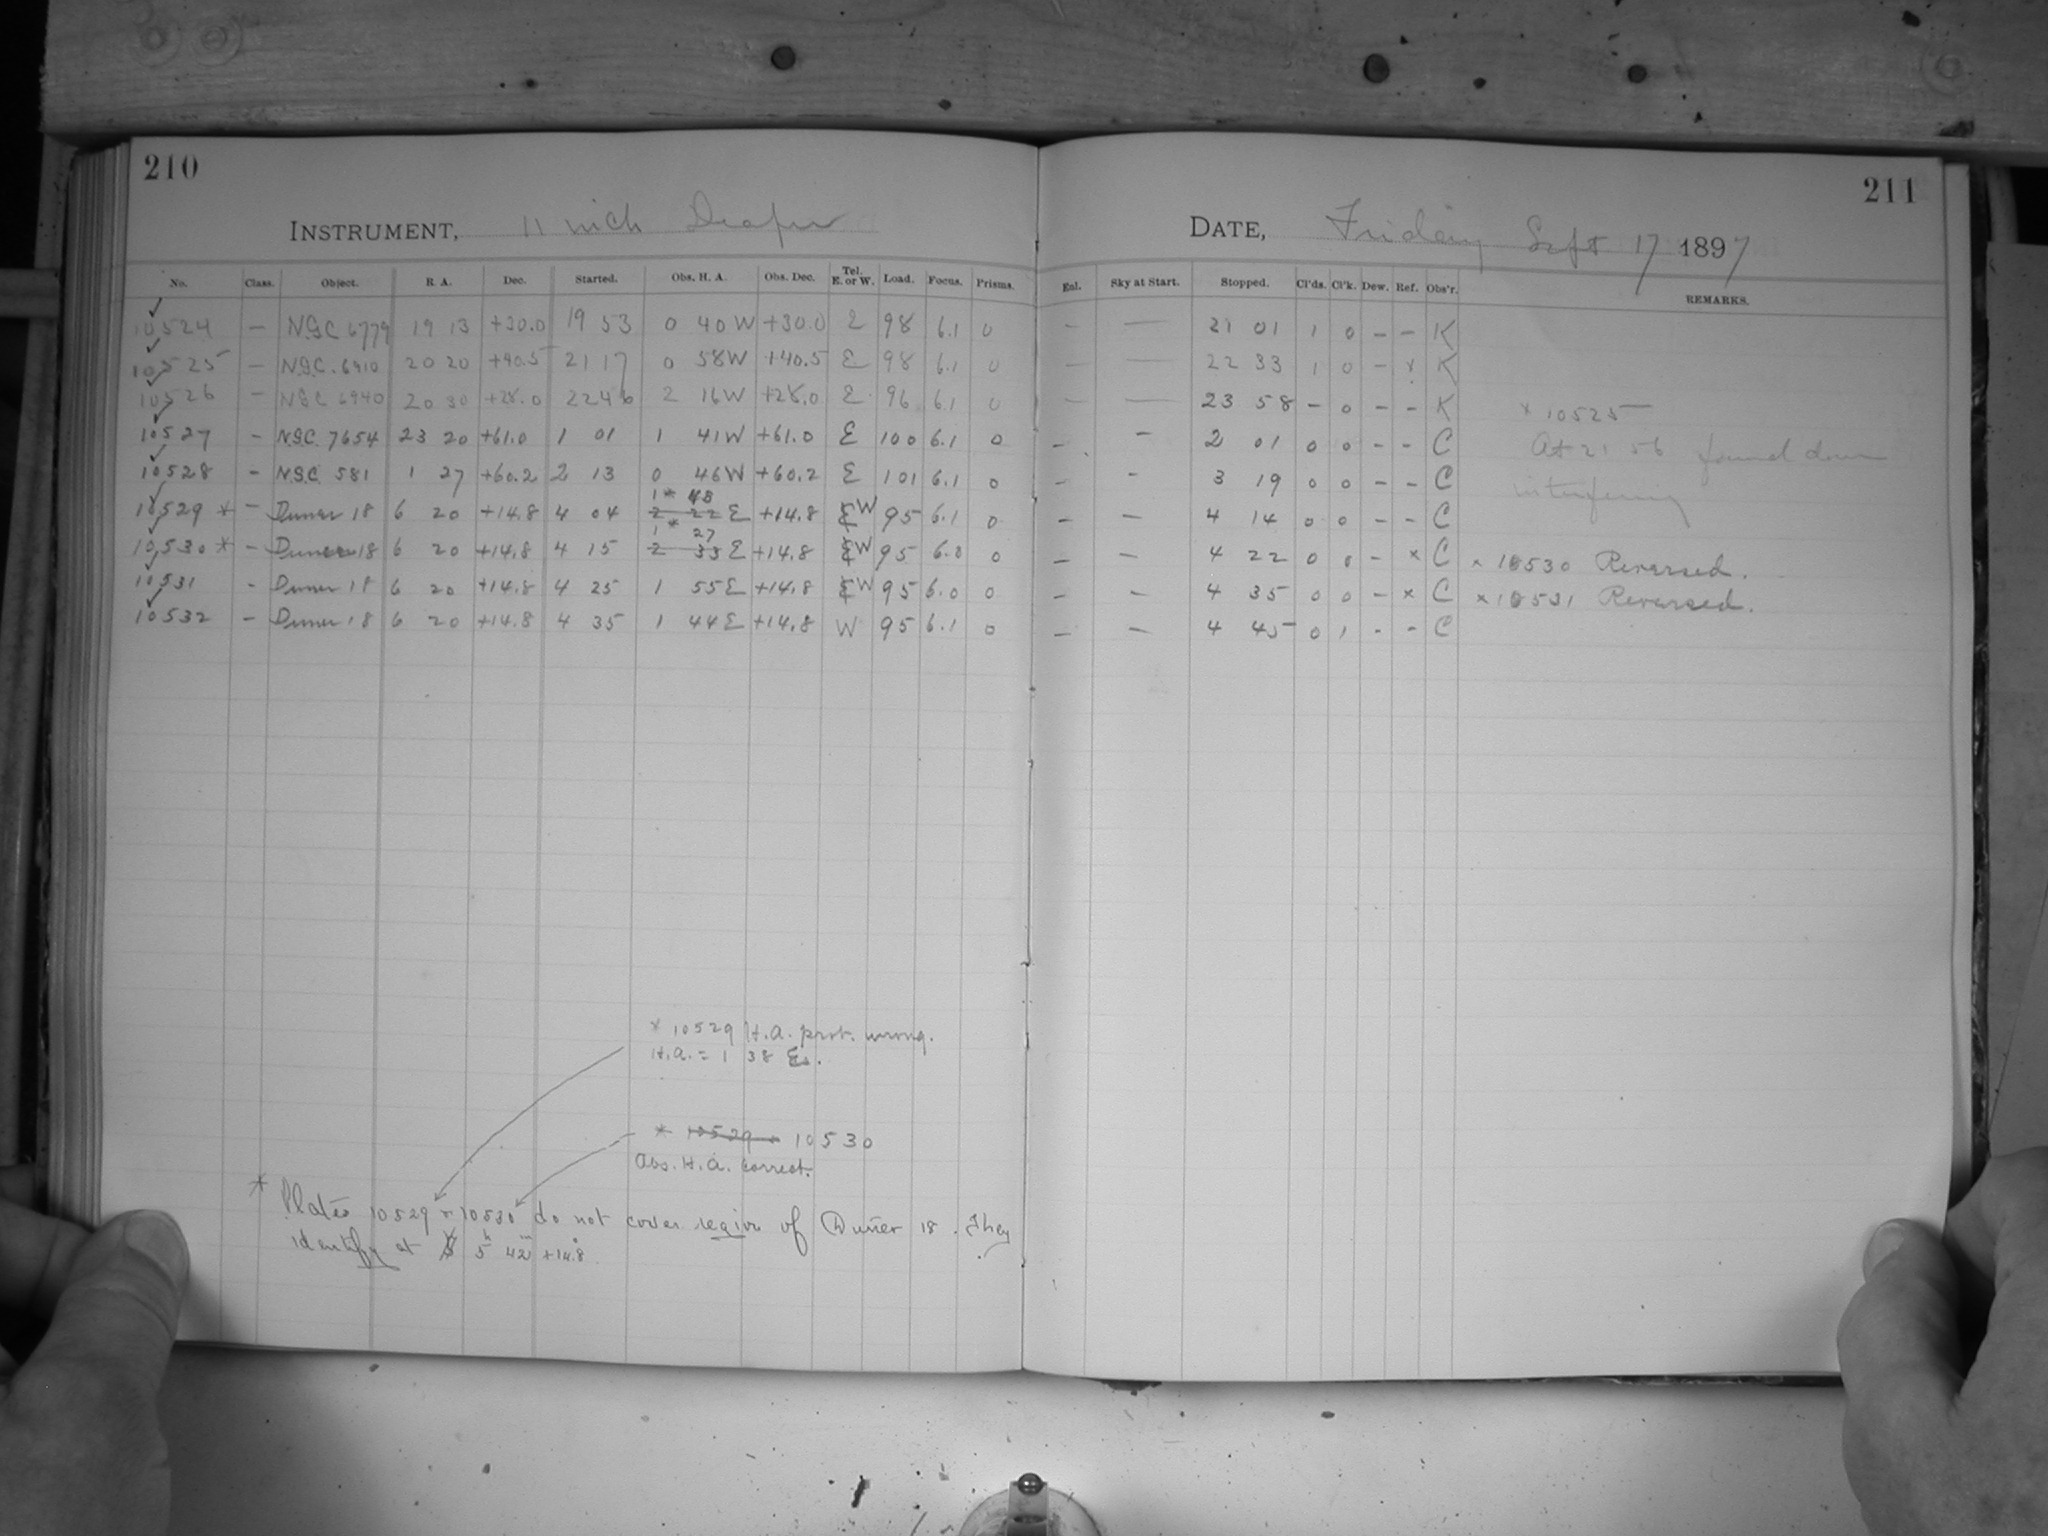 210
INSTRUMENT, 11 inch Draper
No. Class. Object. R. A. Dec. Started. Obs. H. A. Obs. Dec. Tel. E. or W. Load. Focus. Prisms.
10524 – N.G.C. 6779 19 13 +30.0 19 53 0 40 W +30.0 E 98 6.1 0
10525 – N.G.C. 6910 20 20 +40.5 21 17 0 58 W +40.5 E 98 6.1 0
10526 – N.G.C. 6940 20 30 +28.0 22 46 2 16 W +28.0 E 96 6.1 0
10527 – N.G.C. 7654 23 20 +61.0 1 01 1 41 W +61.0 E 100 6.1 0
10528 – N.G.C. 581 1 27 +60.2 2 13 0 46 W +60.2 E 101 6.1 0
1* 48
10529 * – Duner 18 6 20 +14.8 4 04 2 22 E +14.8 E W 95 6.1 0
1* 27
10530 * – Duner 18 6 20 +14.8 4 15 2 33 E +14.8 E W 95 6.0 0
10531 – Duner 18 6 20 +14.8 4 25 1 55 E +14.8 E W 95 6.0 0
10532 – Duner 18 6 20 +14.8 4 35 1 44 E +14.8 W 95 6.1 0
* 10529 H.A. prob. wrong.
H.A. = 1 38 E.
* 10529 10530
Obs. H.A. correct.
* Plates 10529 & 10530 do not cover region of Duner 18. They
identify at 5h 42m +14.8°
211
DATE, Friday Sept 17 1897
Enl. Sky at Start. Stopped. Cl'ds. Cl'k. Dew. Ref. Obs'r. REMARKS.
– – 21 01 1 0 – – K
– – 22 33 1 0 – x K
– – 23 58 – 0 – – K x 10525
– – 2 01 0 0 – – C At 21 56 found dew
– – 3 19 0 0 – – C interfering
– – 4 14 0 0 – – C
– – 4 22 0 0 – x C x 10530 Reversed.
– – 4 35 0 0 – x C x 10531 Reversed.
– – 4 45 0 1 – – C